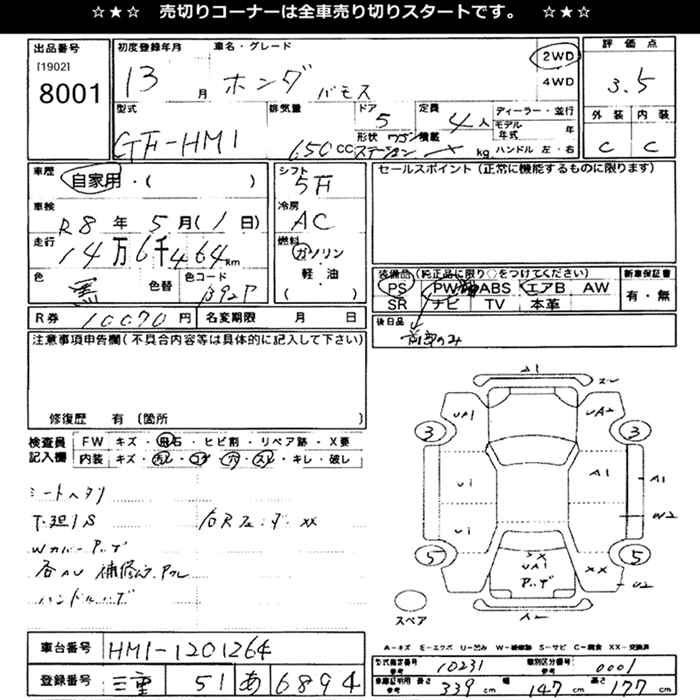 ☆★☆ 売切りコーナーは全車売り切りスタートです。 ☆★☆
出品番号
[1902]
8001
初度登録年月
13 月
車名・グレード
ホンダ バモス
2WD
4WD
評価点
3.5
外装 内装
C C
型式
GF-HM1
排気量
650 CC
ドア
5
形状 ワゴン
ステーション
定員
4人
積載
kg
ディーラー・並行
モデル年式 年
ハンドル 左・右
車歴
自家用・( )
車検
R8 年 5 月(1日)
走行
14万6千464km
色
黒
色替
色コード
B92P
シフト
5F
冷房
AC
燃料
ガソリン
軽・油
( )
セールスポイント(正常に機能するものに限ります)
装備品(純正品に限り○をつけてください)
PS PW ABS エアB AW
SR ナビ TV 本革
新車保証書
有・無
後日品
前部のみ
R券 10070円
名変期限 月 日
注意事項申告欄(不具合内容等は具体的に記入して下さい)
修復歴 有(箇所 )
検査員記入欄
FW キズ・飛石・ヒビ割・リペア跡・X要
内装 キズ・汚レ・コゲ・穴・スレ・キレ・破レ
シートヘタリ
右Rフェンダー XX
ハンドル
A1
UA1
UA2
3
3
U1
A1
A1
U1
W2
5
5
XX
U2
A2
スペア
A-キズ E-エクボ U-凹み W-補修跡 S-サビ C-腐食 XX-交換済
車台番号
HM1-1201264
登録番号
三重 51 あ 6894
型式指定番号
参考
10231
類別区分番号
参考
0001
車庫証明用
参考
長さ 339 cm
幅 147 cm
高さ 177 cm